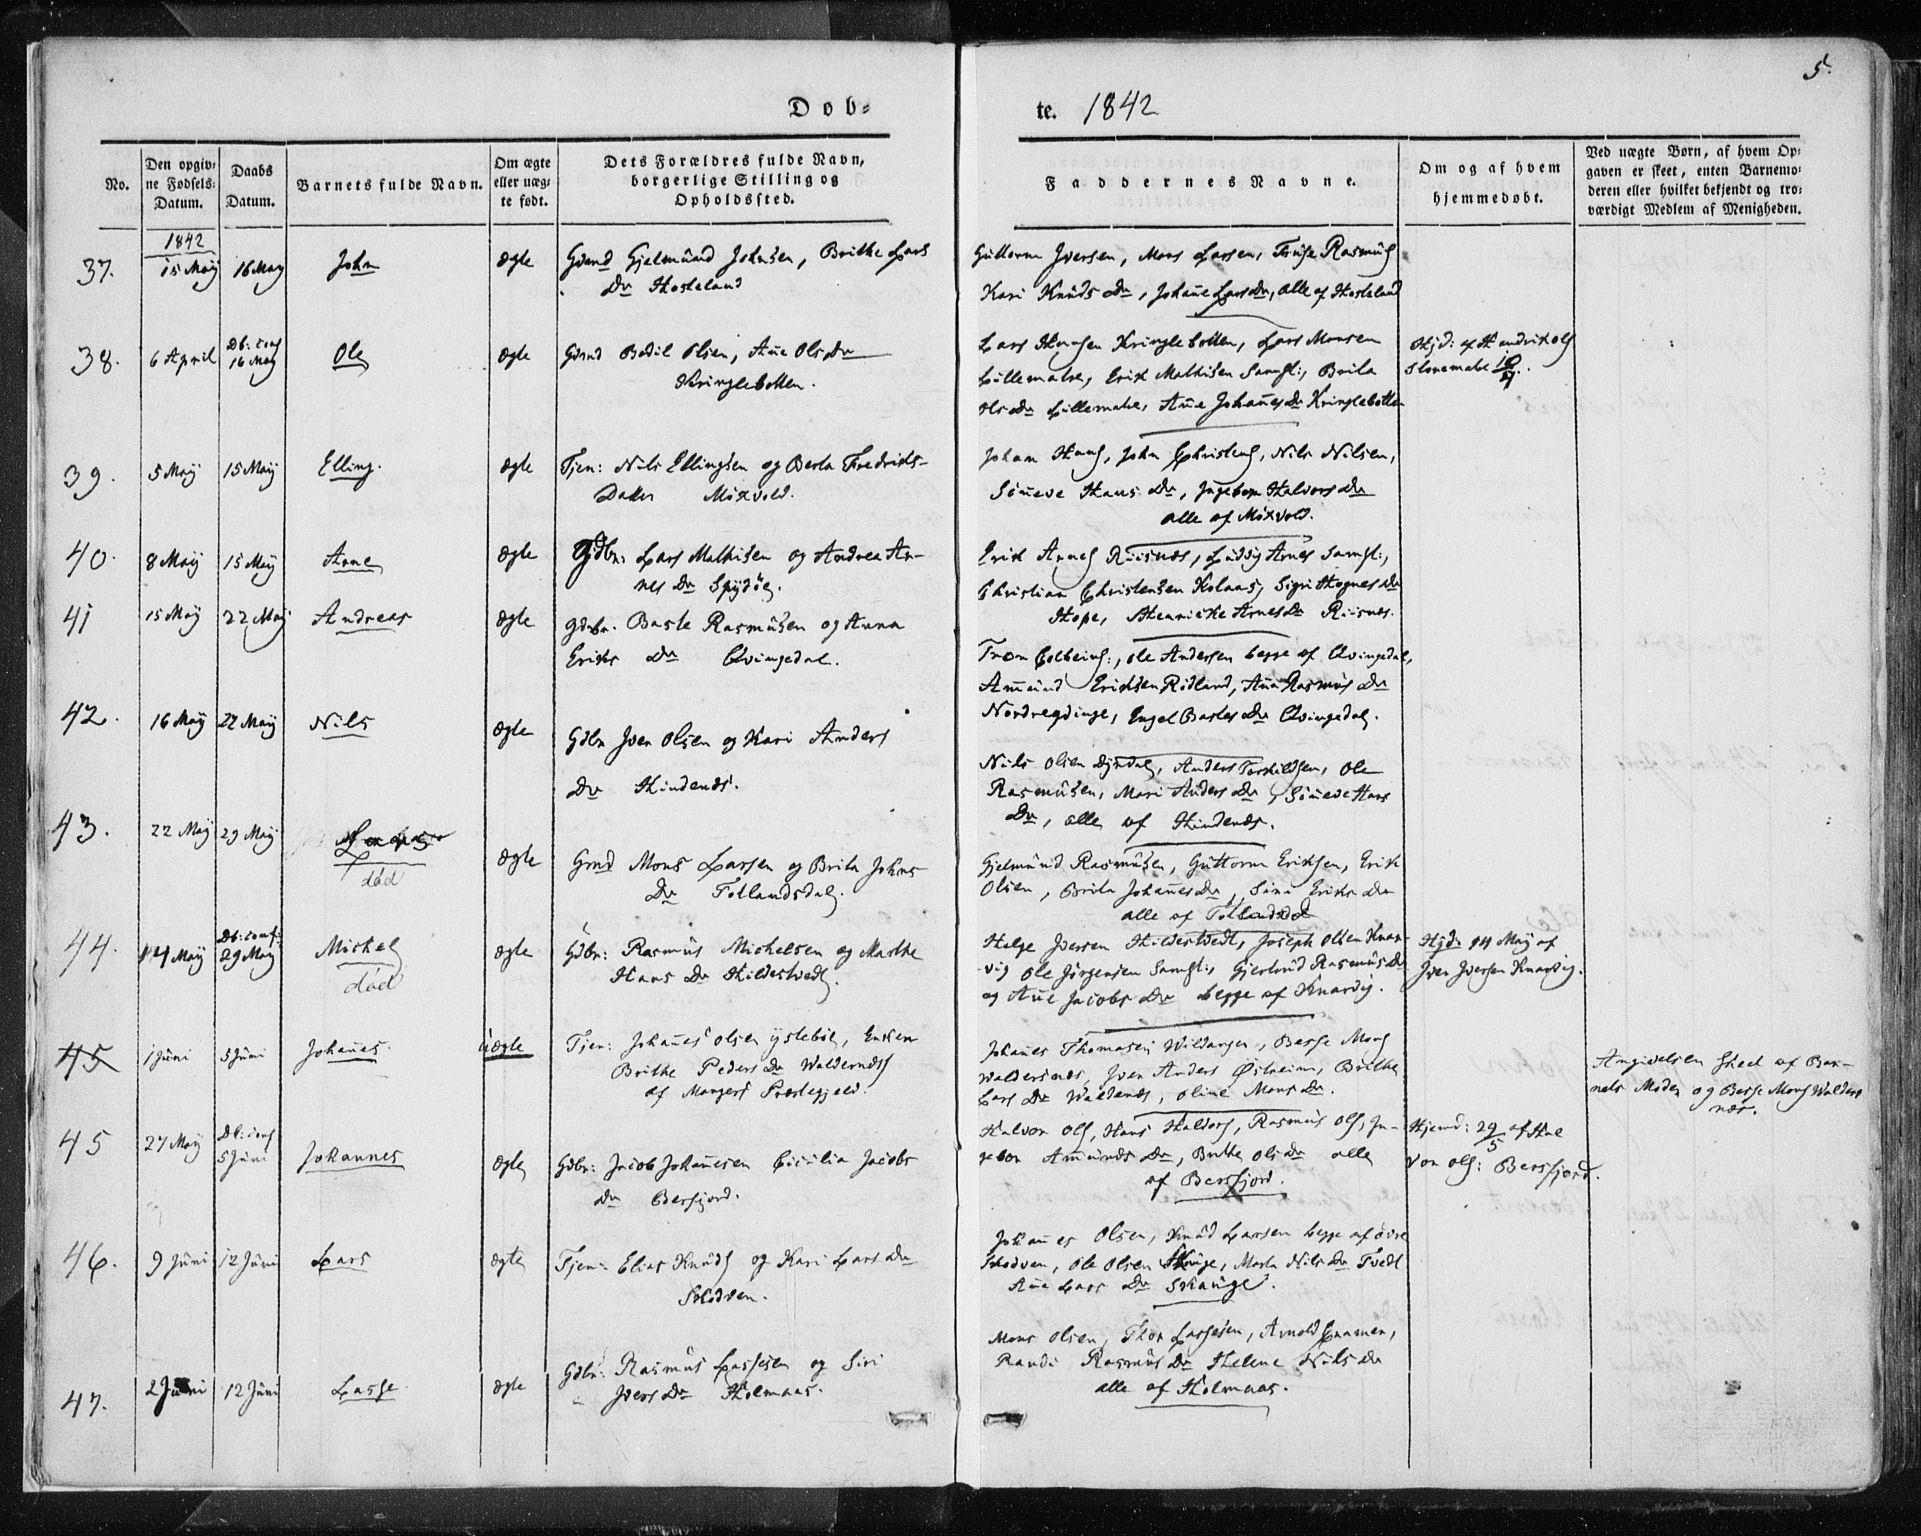 5.
Døb-
te. 1842
No.
Den opgiv-
ne Fødsels-
Datum.
Daabs
Datum.
Barnets fulde Navn.
Om ægte
eller uæg-
te født.
Dets Forældres fulde Navn,
borgerlige Stilling og
Opholdssted.
Faddernes Navne.
Om og af hvem
hjemmedøbt.
Ved uægte Børn, af hvem Op-
gaven er skeet, enten Barnemo-
deren eller hvilket bekjendt og tro-
værdigt Medlem af Menigheden.
1842
37. 15 Maÿ 16 May John Ægte Gdmd Gjelmund Johnsen, Brithe Lars
Dr Hosteland
Guttorm Iversen, Mons Larsen, Rasmus
Kari Knuds Dr, Johane Lars Dr, alle af Hosteland
38. 6 April Db: conf
16 May Ole Ægte Gdmd Bodil Olsen, Ane Ols Dr
Kringlebotten.
Lars Hansen Kringlebotten, Lars Monsen
Lillematre, Erik Mathisen Samst:, Brita
Ols Dr Lillematre, Ane Johanes Dr Kringlebotten
Hjd: af Hendrik Ols
Storematre
39. 5 Maÿ 15 Maÿ Elling. Ægte Tjen: Nils Ellingsen og Berta Fredriks-
Datter Møxvold.
Johan Hans, John Christens, Nils Nilsen,
Søneve Hans Dr, Ingebor Halvors Dr
alle af Møxvold.
40. 8 Maÿ 15 Maÿ Arne Ægte Gdbr: Lars Mathisen og Andrea Ar-
nes Dr Spydøe.
Erik Arnes Riisnes, Ludvig Arnes Samst:,
Christian Christensen Kolaas, Sigri Hognes Dr
Hope, Henricke Arnes Dr Riisnes.
41 15 Maÿ 22 Maÿ Andreas Ægte Gdbr. Baste Rasmusen og Anna
Eriks Dr Qvingedal.
Ole Andersen begge af Qvingedal,
Amund Eriksen Ridland, Ana Rasmus Dr
Engel Bastes Dr Qvingedal.
42. 16 Maÿ 22 Maÿ Nils Ægte Gdbr Iver Olsen og Kari Anders
Dr Hindenes.
Nils Olsen Dyrdal, Anders Torkildsen, Ole
Rasmusen, Mari Anders Dr, Søneve Hans
Dr, alle af Hindenes.
43. 22 Maÿ 29 Maÿ
død
Ægte Gmd Mons Larsen og Brita Johns
Dr Totlandsdal.
Gjelmund Rasmusen, Guttorm Eriksen, Erik
Olsen, Brita Johanes Dr, Eriks Dr
alle af Totlandsdal
44. 14 Maÿ Db: conf:
29 Maÿ Mickel
død
Ægte Gdbr: Rasmus Mickelsen og Marthe
Hans Dr Hildestvedt.
Helge Iversen Hildestvedt, Joseph Olsen Knar-
vig Ole Jørgensen Samst:, Gjertrud Rasmus Dr
og Ane Jacobs Dr begge af Knarvig.
Hjd: 14 Maÿ af
Iver Iversen Knarvig.
45 1 Juni 5 Juni Johanes. Uægte Tjen: Johanes Olsen Ystebøe, Enken
Brithe Peders Dr Waldernes
af Mangers Præstegjeld.
Johanes Thomasen, Berse Mons
Waldersnes, Iver Anders Østreim, Brithe
Lars Dr Waldernes, Oline Mons Dr.
Angivelsen skeet af Bar-
nets Moder og Berse Mons Walders
nes.
45 27 Maÿ Db: conf
5 Juni Johannes Ægte Gdbr: Jacob Johanesen Cicilia Jacobs
Dr Bersfjord.
Halvor Ols, Hans Halvors, Rasmus Ols, In-
gebor Amunds Dr, Brithe Ols Dr alle
af Bersfjord.
Hjemd: 29/5 af Hal
vor Ols: Bersfjord.
46. 9 Juni 12 Juni Lars Ægte Tjen: Elias Knuds og Kari Lars Dr
Skodven.
Johanes Olsen, Knud Larsen begge af Øvre
Skodven, Ole Olsen Skauge, Marta Nils Dr Tvedt
Ane Lars Dr Skauge.
47. 2 Juni 12 Juni Lasse. Ægte Gdbr: Rasmus Lassesen og Siri
Ivers Dr Holmaas.
Mons Olsen, Thor Lassesen, Arnold Enamen,
Randi Rasmus Dr Helene Nils Dr
alle af Holmaas.